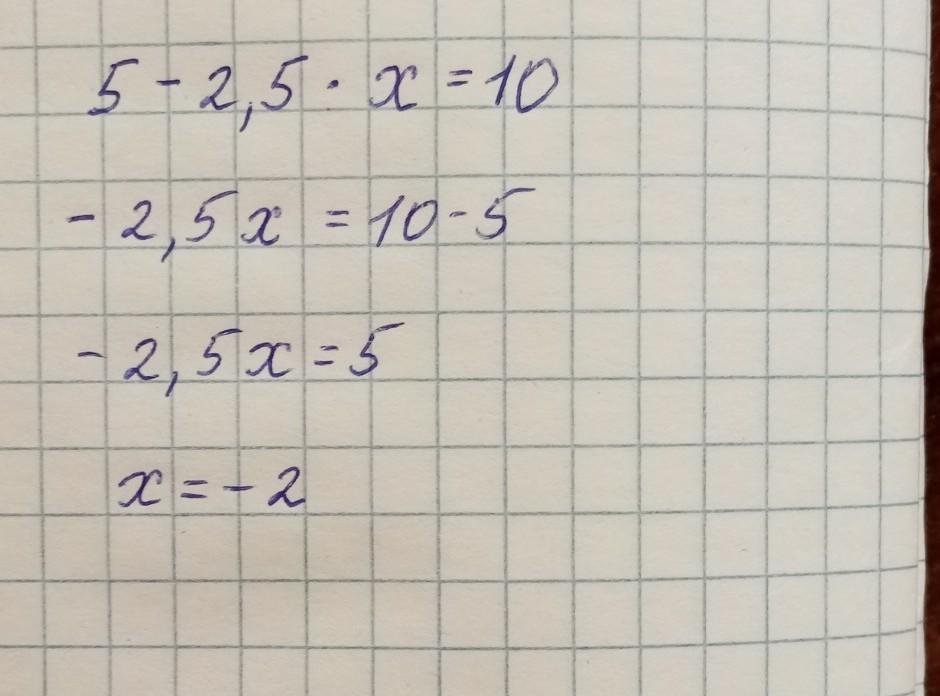 5 - 2,5 · x = 10
- 2,5x = 10 - 5
- 2,5x = 5
x = - 2